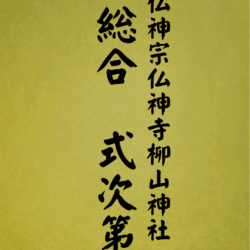 仏神宗仏神寺柳山神社
総合 式次第